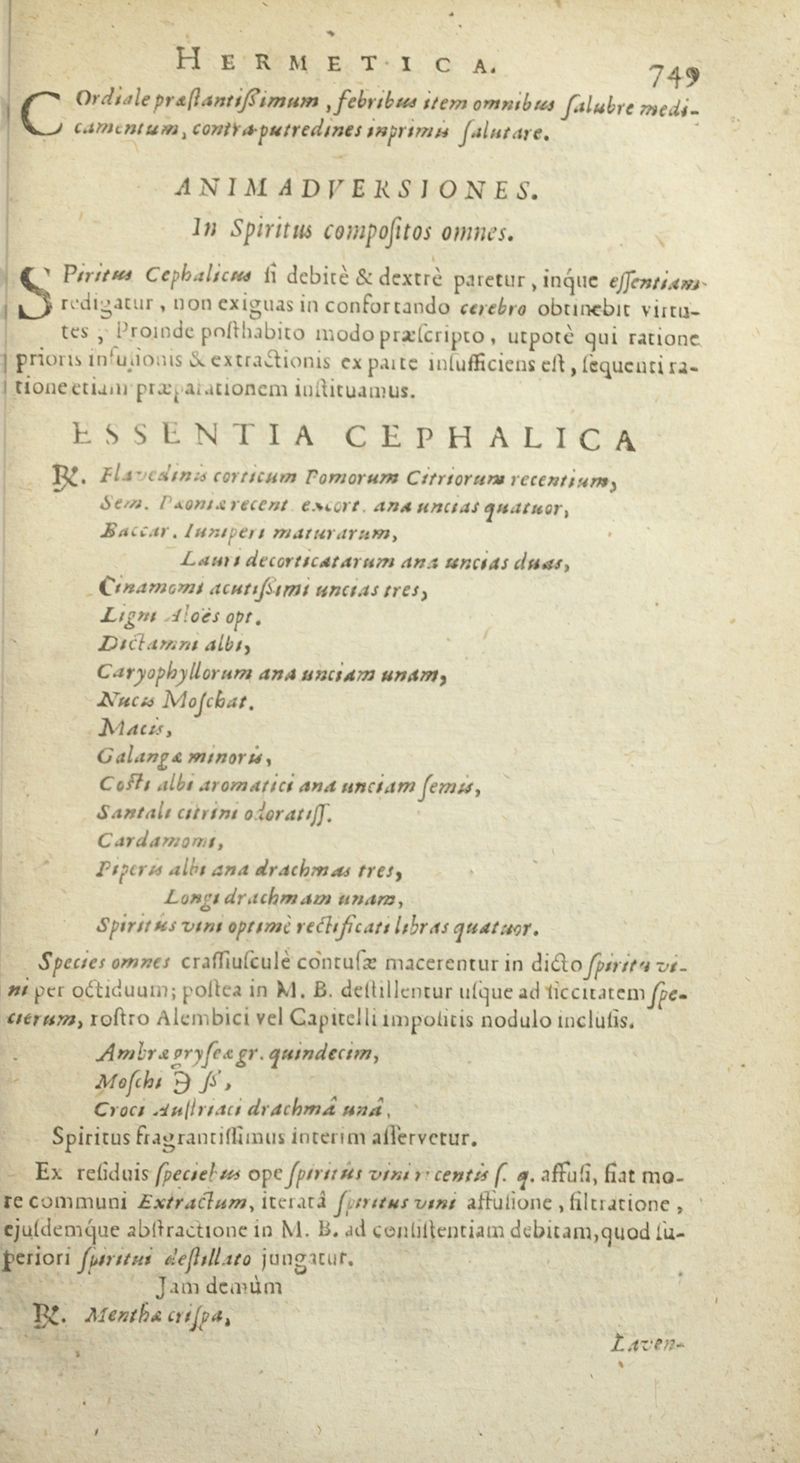 HERMETICA. 749
COrdiale præstantißimum, febribus item omnibus salubre medi-
camentum, contra putredines inprimis salutare.
ANIMADVERSIONES.
In Spiritus compositos omnes.
SPiritus Cephalicus si debitè & dextrè paretur, inque essentiam
redigatur, non exiguas in confortando cerebro obtinebit virtu-
tes, Proinde posthabito modo præscripto, utpotè qui ratione
prioris infusionis & extractionis ex parte insufficiens est, sequenti ra-
tione etiam præparationem instituamus.
ESSENTIA CEPHALICA
℞. Flavedinis corticum Pomorum Citriorum recentium,
Sem. Pæoniæ recent excort. ana uncias quatuor,
Baccar. Iuniperi maturarum,
Lauri decorticatarum ana uncias duas,
Cinamomi acutißimi uncias tres,
Ligni Aloës opt.
Dictamni albi,
Caryophyllorum ana unciam unam,
Nucis Moschat.
Macis,
Galangæ minoris,
Costi albi aromatici ana unciam semis,
Santali citrini odoratiss.
Cardamomi,
Piperis albi ana drachmas tres,
Longi drachmam unam,
Spiritus vini optimè rectificati libras quatuor.
Species omnes crassiusculè contusæ macerentur in dicto spiritu vi-
ni per octiduum; postea in M. B. destillentur usque ad siccitatem spe-
cierum, rostro Alembici vel Capitelli impositis nodulo inclusis.
Ambræ gryseæ gr. quindecim,
Moschi ℈ ß,
Croci Austriaci drachmâ unâ,
Spiritus fragrantissimus interim asservetur.
Ex residuis speciebus ope spiritus vini recentis s. q. affusi, fiat mo-
re communi Extractum, iteratâ spiritus vini affusione, filtratione,
ejusdemque abstractione in M. B. ad consistentiam debitam, quod su-
periori spiritui destillato jungatur.
Jam demùm
℞. Menthæ crispæ,
Laven-